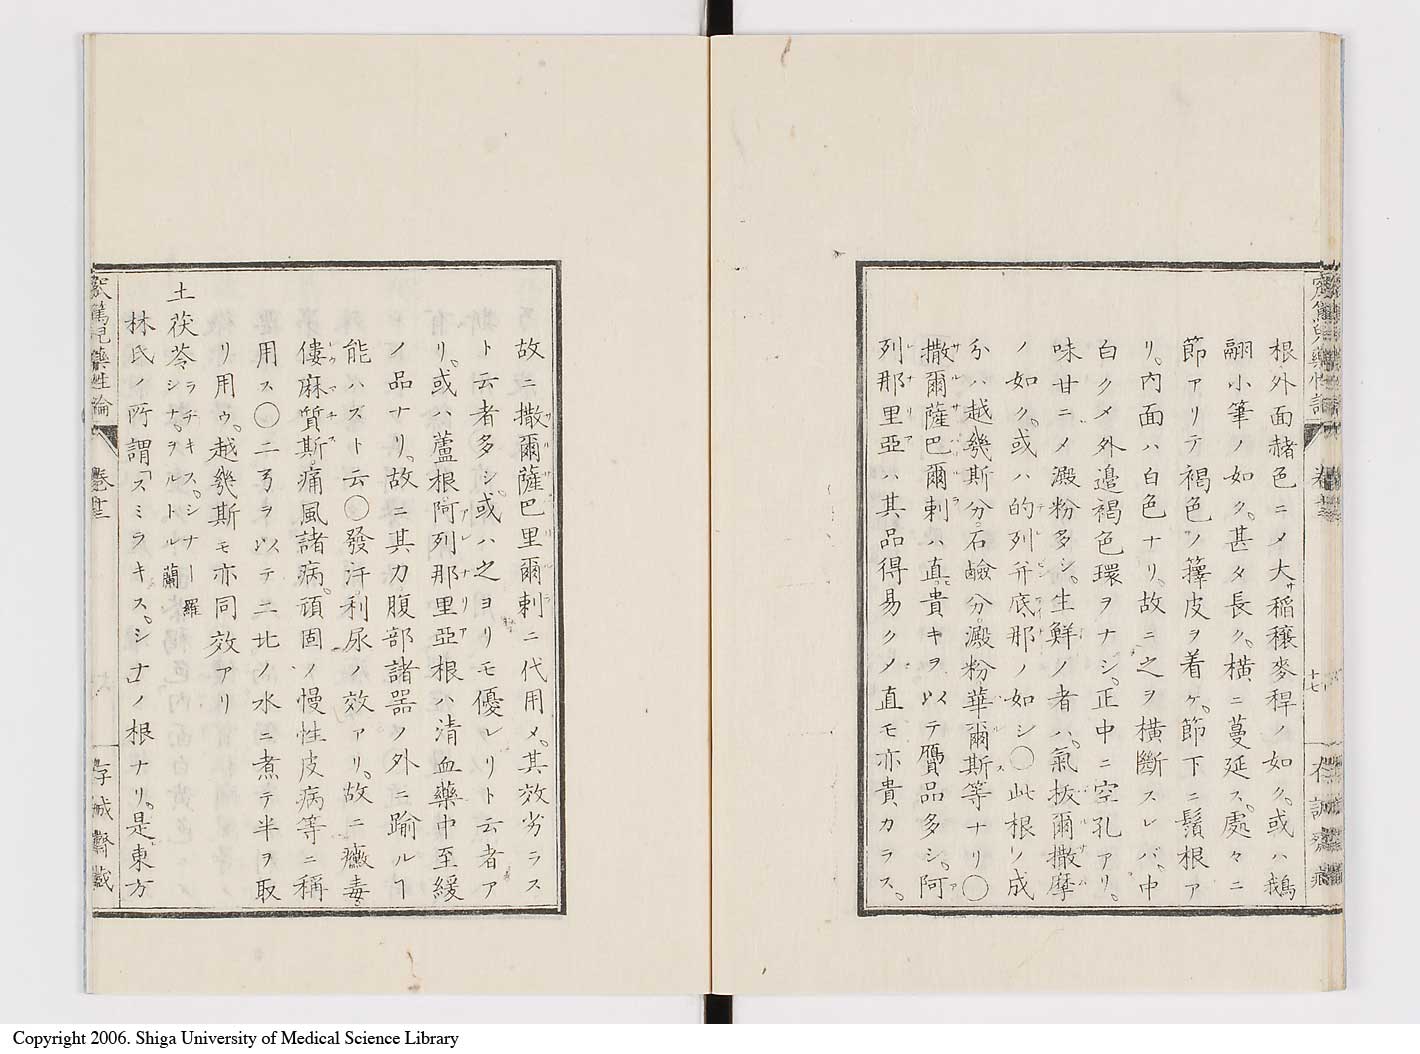 根外面赭色ニ〆大サ稲穣麥稈ノ如ク。或ハ鵝
翮小筆ノ如ク。甚タ長ク。横ニ蔓延ス。處々ニ
節アリテ褐色ノ籜皮ヲ着ケ。節下ニ鬚根ア
リ。内面ハ白色ナリ。故ニ之ヲ横斷スレバ。中
白ク〆外邉褐色環ヲナシ。正中ニ空孔アリ。
味甘ニ〆澱粉多シ。生鮮ノ者ハ。氣拔爾撒摩
ノ如ク。或ハ的列並底那ノ如シ〇此根ノ成
分ハ越幾斯分。石鹼分。澱粉華爾斯等ナリ〇
撒爾薩巴爾剌ハ。直。貴キヲ以テ贋品多シ。阿
列那里亞ハ其品得易ク〆直モ亦貴カラス。
窊篤兒藥性論
十七
故ニ撒爾薩巴里爾剌ニ代用〆。其效劣ラス
ト云者多シ。或ハ之ヨリモ優レリト云者ア
リ。或ハ蘆根阿列那里亞根ハ清血藥中至緩
ノ品ナリ。故ニ其力腹部諸器ノ外ニ踰ルヿ
能ハズト云〇發汗。利尿ノ效アリ。故ニ黴毒。
僂麻質斯。痛風諸病。頑固ノ慢性皮病等ニ稱
用ス〇二弖ヲ以テ二比ノ水ニ煮テ半ヲ取
リ用ウ。越幾斯モ亦同效アリ
土茯苓 ラヂキス。シナー 羅
シナ。ヲルトル 蘭
林氏ノ所謂「スミラキス。シナ」ノ根ナリ。是。東方
窊篤兒藥性論 卷十三 存誠齋藏